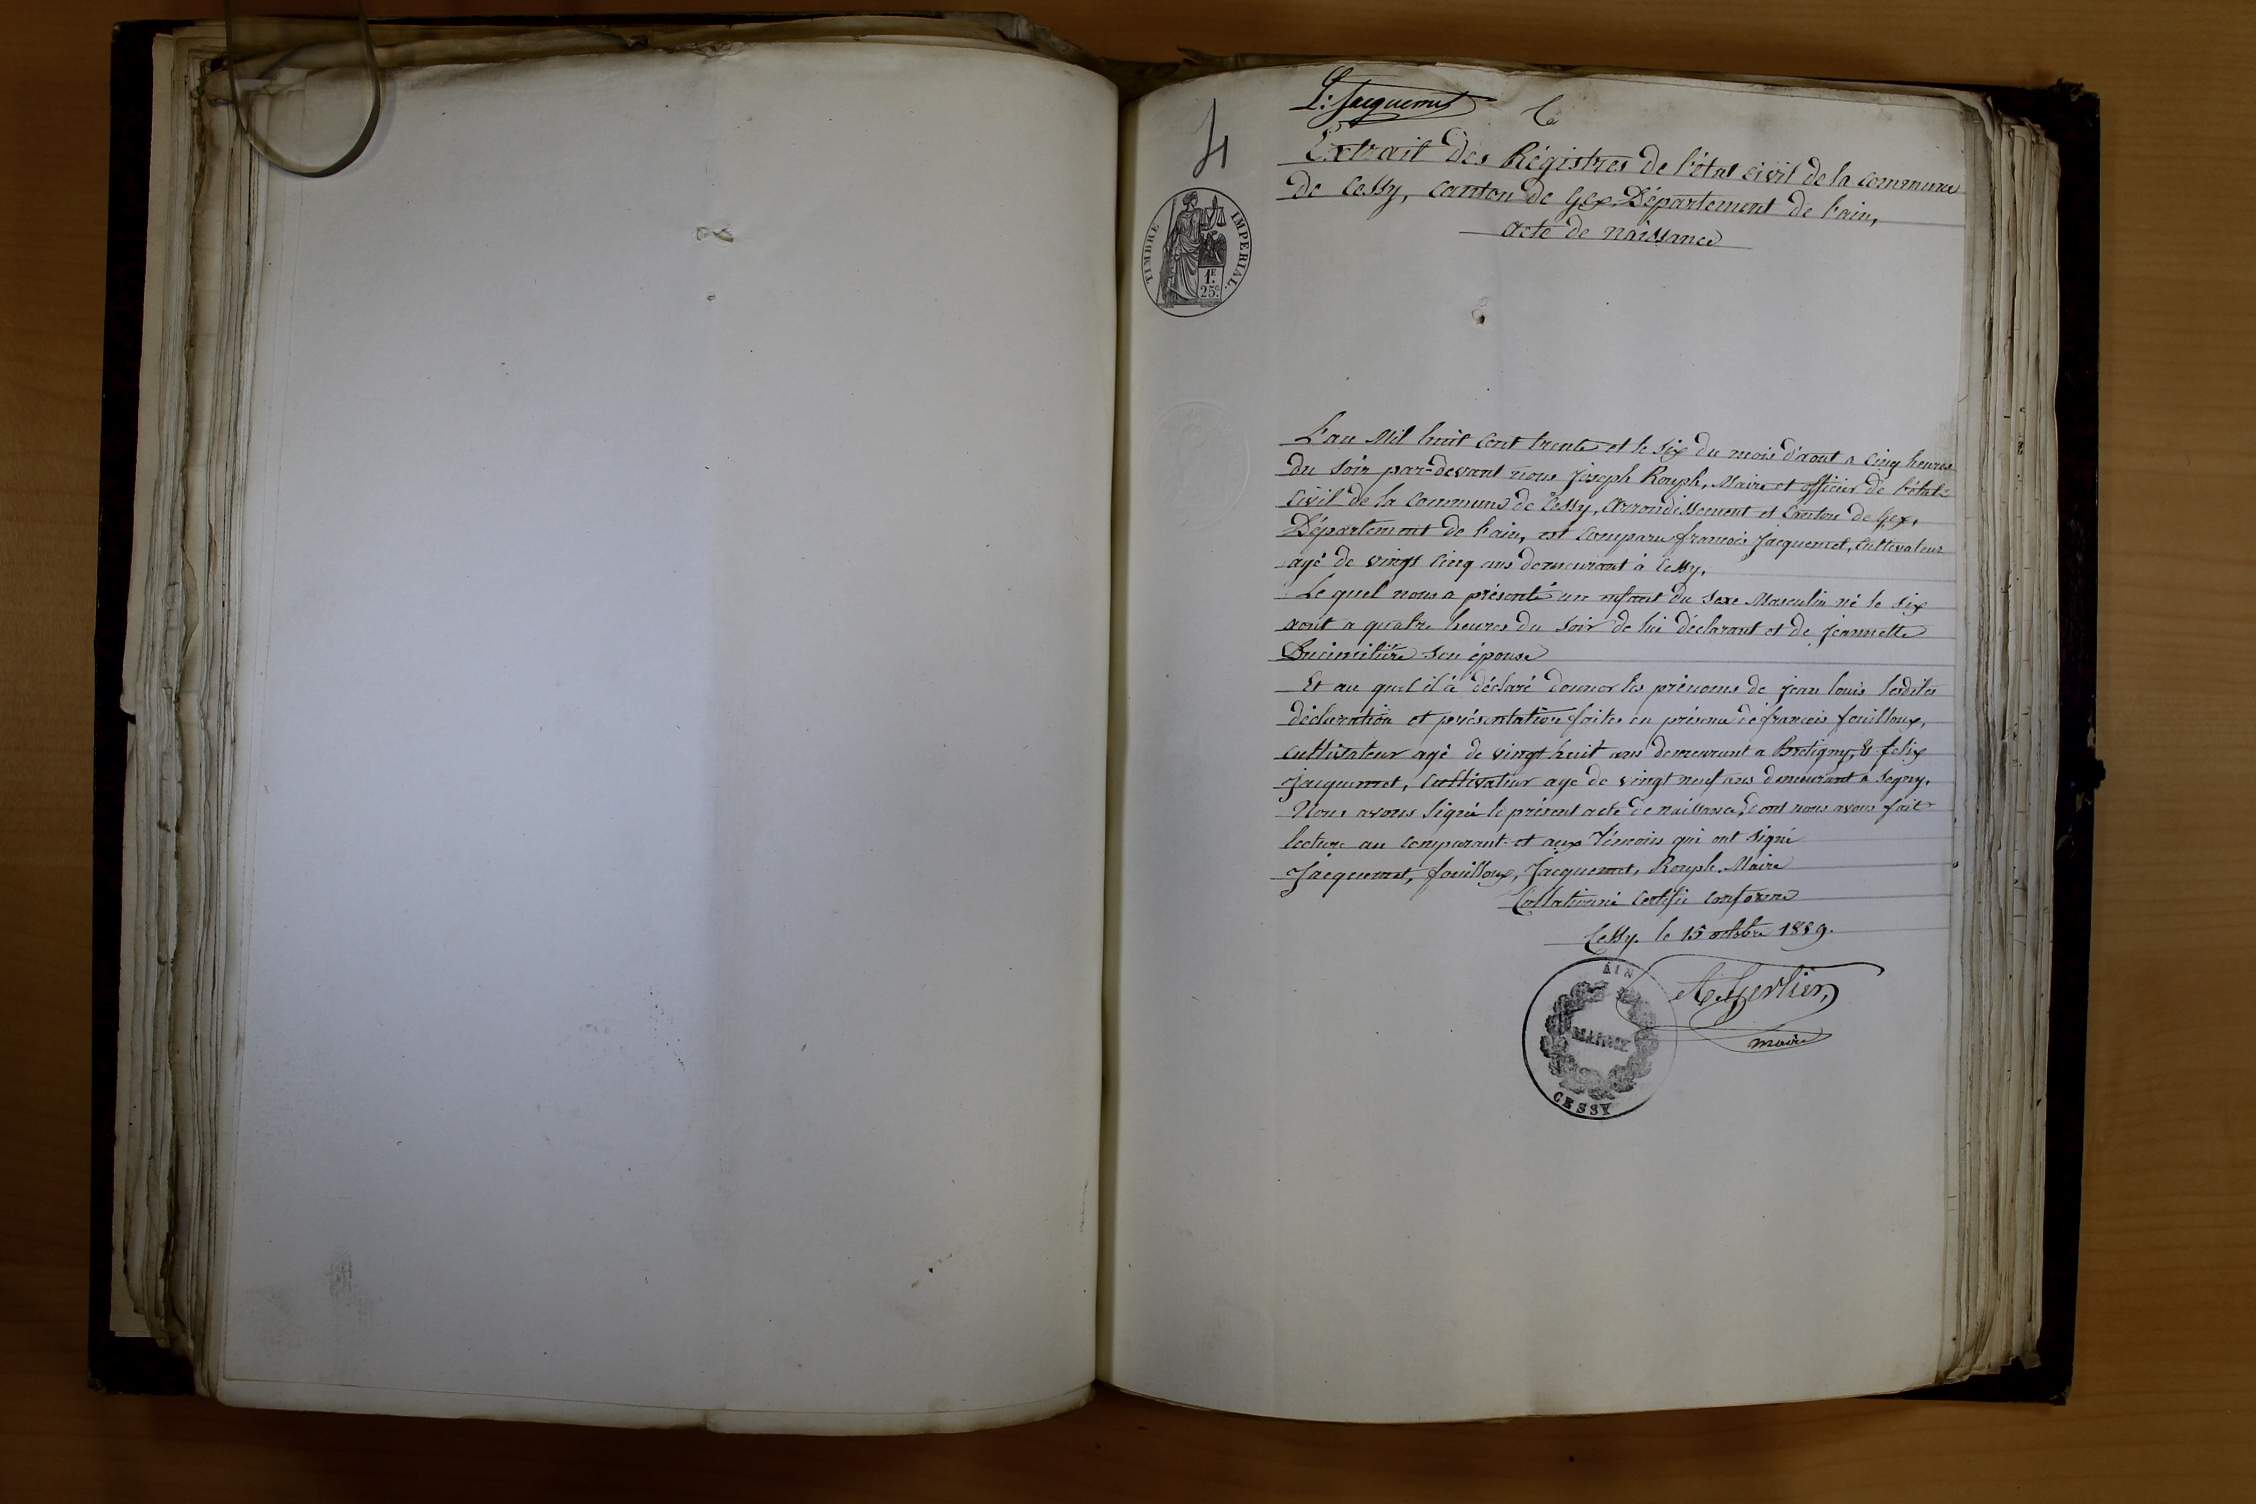 L: Jacquemet
4
Extrait des Régistres de l'état civil de la commune
de Cessy, canton de Gex, Département de l'ain,
acte de naissance
TIMBRE IMPERIAL.
1F.
25c.
L'an Mil huit Cent trente et le six du mois d'aout a cinq heures
du soir par-devant nous Joseph Rouph, Maire et officier de l'état-
civil de la commune de Cessy, Arrondissement et Canton de Gex,
Département de l'ain, est comparu francois Jacquemet, Cultivateur
agé de vingt cinq ans demeurant à Cessy,
Le quel nous a présenté un enfant du sexe Masculin né le six
aout a quatre heures du soir de lui déclarant et de Jeannette
son épouse
Et au quel il à déclaré donner les prénoms de jean louis lesdites
déclaration et présentation faites en présence de francois fouilloux,
cultivateur agé de vingt huit ans demeurant a Bretigny, & felix
Jacquemet, cultivateur agé de vingt neuf ans demeurant a Segny,
Nous avons signé le présent acte de naissance, dont nous avons fait
lecture au comparant et aux Témoins qui ont signé
Jacquemet, fouilloux, Jacquemet, Rouph, Maire
Collationné Certifié conforme
Cessy le 15 octobre 1859.
maire
AIN
MAIRIE
CESSY